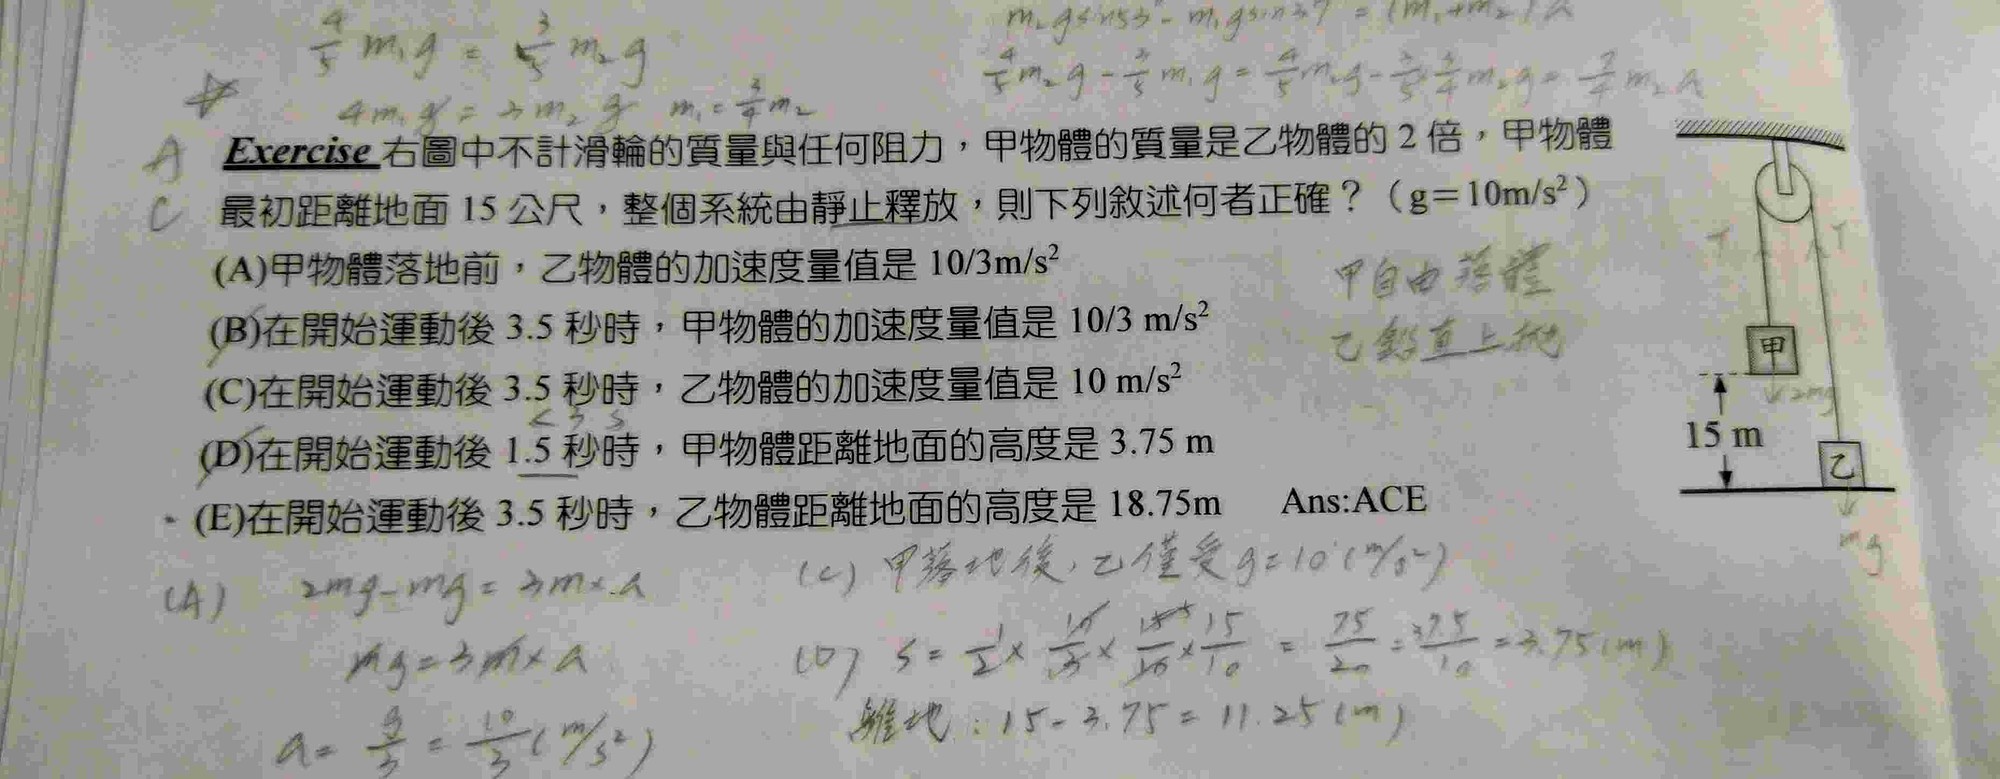 4/5 m₁g = 3/5 m₂g
m₂gsin53° - m₁gsin37 = (m₁+m₂)a
4m₁g = 3m₂g m₁ = 3/4 m₂
4/5 m₂g - 3/5 m₁g = 4/5 m₂g - 3/5 3/4 m₂g = 7/4 m₂a
A
C
Exercise 右圖中不計滑輪的質量與任何阻力，甲物體的質量是乙物體的 2 倍，甲物體
最初距離地面 15 公尺，整個系統由靜止釋放，則下列敘述何者正確？（g＝10m/s²）
(A)甲物體落地前，乙物體的加速度量值是 10/3m/s²
(B)在開始運動後 3.5 秒時，甲物體的加速度量值是 10/3 m/s²
(C)在開始運動後 3.5 秒時，乙物體的加速度量值是 10 m/s²
<3 s
(D)在開始運動後 1.5 秒時，甲物體距離地面的高度是 3.75 m
(E)在開始運動後 3.5 秒時，乙物體距離地面的高度是 18.75m Ans:ACE
甲自由落體
乙鉛直上拋
T T
甲
2mg
15 m
乙
mg
(A) 2mg-mg = 3m×a
mg = 3m×a
a = g/3 = 10/3 (m/s²)
(C) 甲落地後，乙僅受g=10 (m/s²)
(D) S = 1/2 × 10/3 × 15/10 × 15/10 = 75/20 = 37.5/10 = 3.75 (m)
離地：15-3.75 = 11.25 (m)